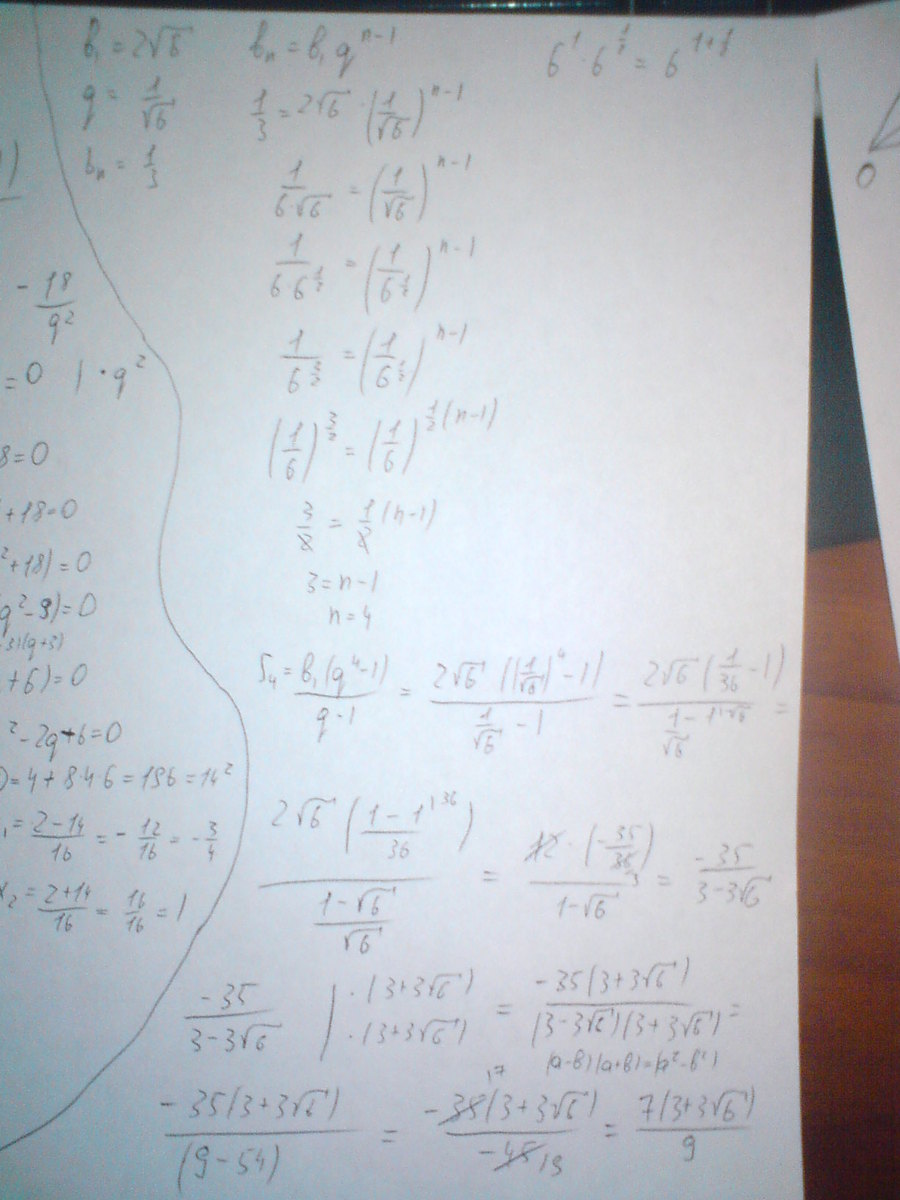 b₁ = 2√6
q = 1/√6
bₙ = 1/3
bₙ = b₁ q^(n-1)
1/3 = 2√6 · (1/√6)^(n-1)
1/(6·√6) = (1/√6)^(n-1)
1/(6·6^(1/2)) = (1/6^(1/2))^(n-1)
1/6^(3/2) = (1/6^(1/2))^(n-1)
(1/6)^(3/2) = (1/6)^(1/2 (n-1))
3/2 = 1/2 (n-1)
3 = n-1
n = 4
6^1 · 6^(1/2) =
S₄ = b₁(q⁴-1)/(q-1) = 2√6 ((1/√6)⁴ - 1)/(1/√6 - 1) = 2√6 (1/36 - 1)/(1/√6 - 1^(1·√6)) =
2√6 ((1 - 1^(36))/36)/((1-√6)/√6) = 12 · (-35/36)/(1-√6) = -35/(3-3√6)
-35/(3-3√6) | ·(3+3√6) ·(3+3√6) = -35(3+3√6)/((3-3√6)(3+3√6)) =
-35(3+3√6)/(9-54) = -35(3+3√6)/-45 = 7(3+3√6)/9
- 18/q²
= 0 | · q²
8=0
+18=0
²+18)=0
q²-9)=0
-3)(q+3)
+6)=0
²-2q+6=0
D=4+8·4·6=196=14²
₁ = (2-14)/16 = -12/16 = -3/4
x₂ = (2+14)/16 = 16/16 = 1
O